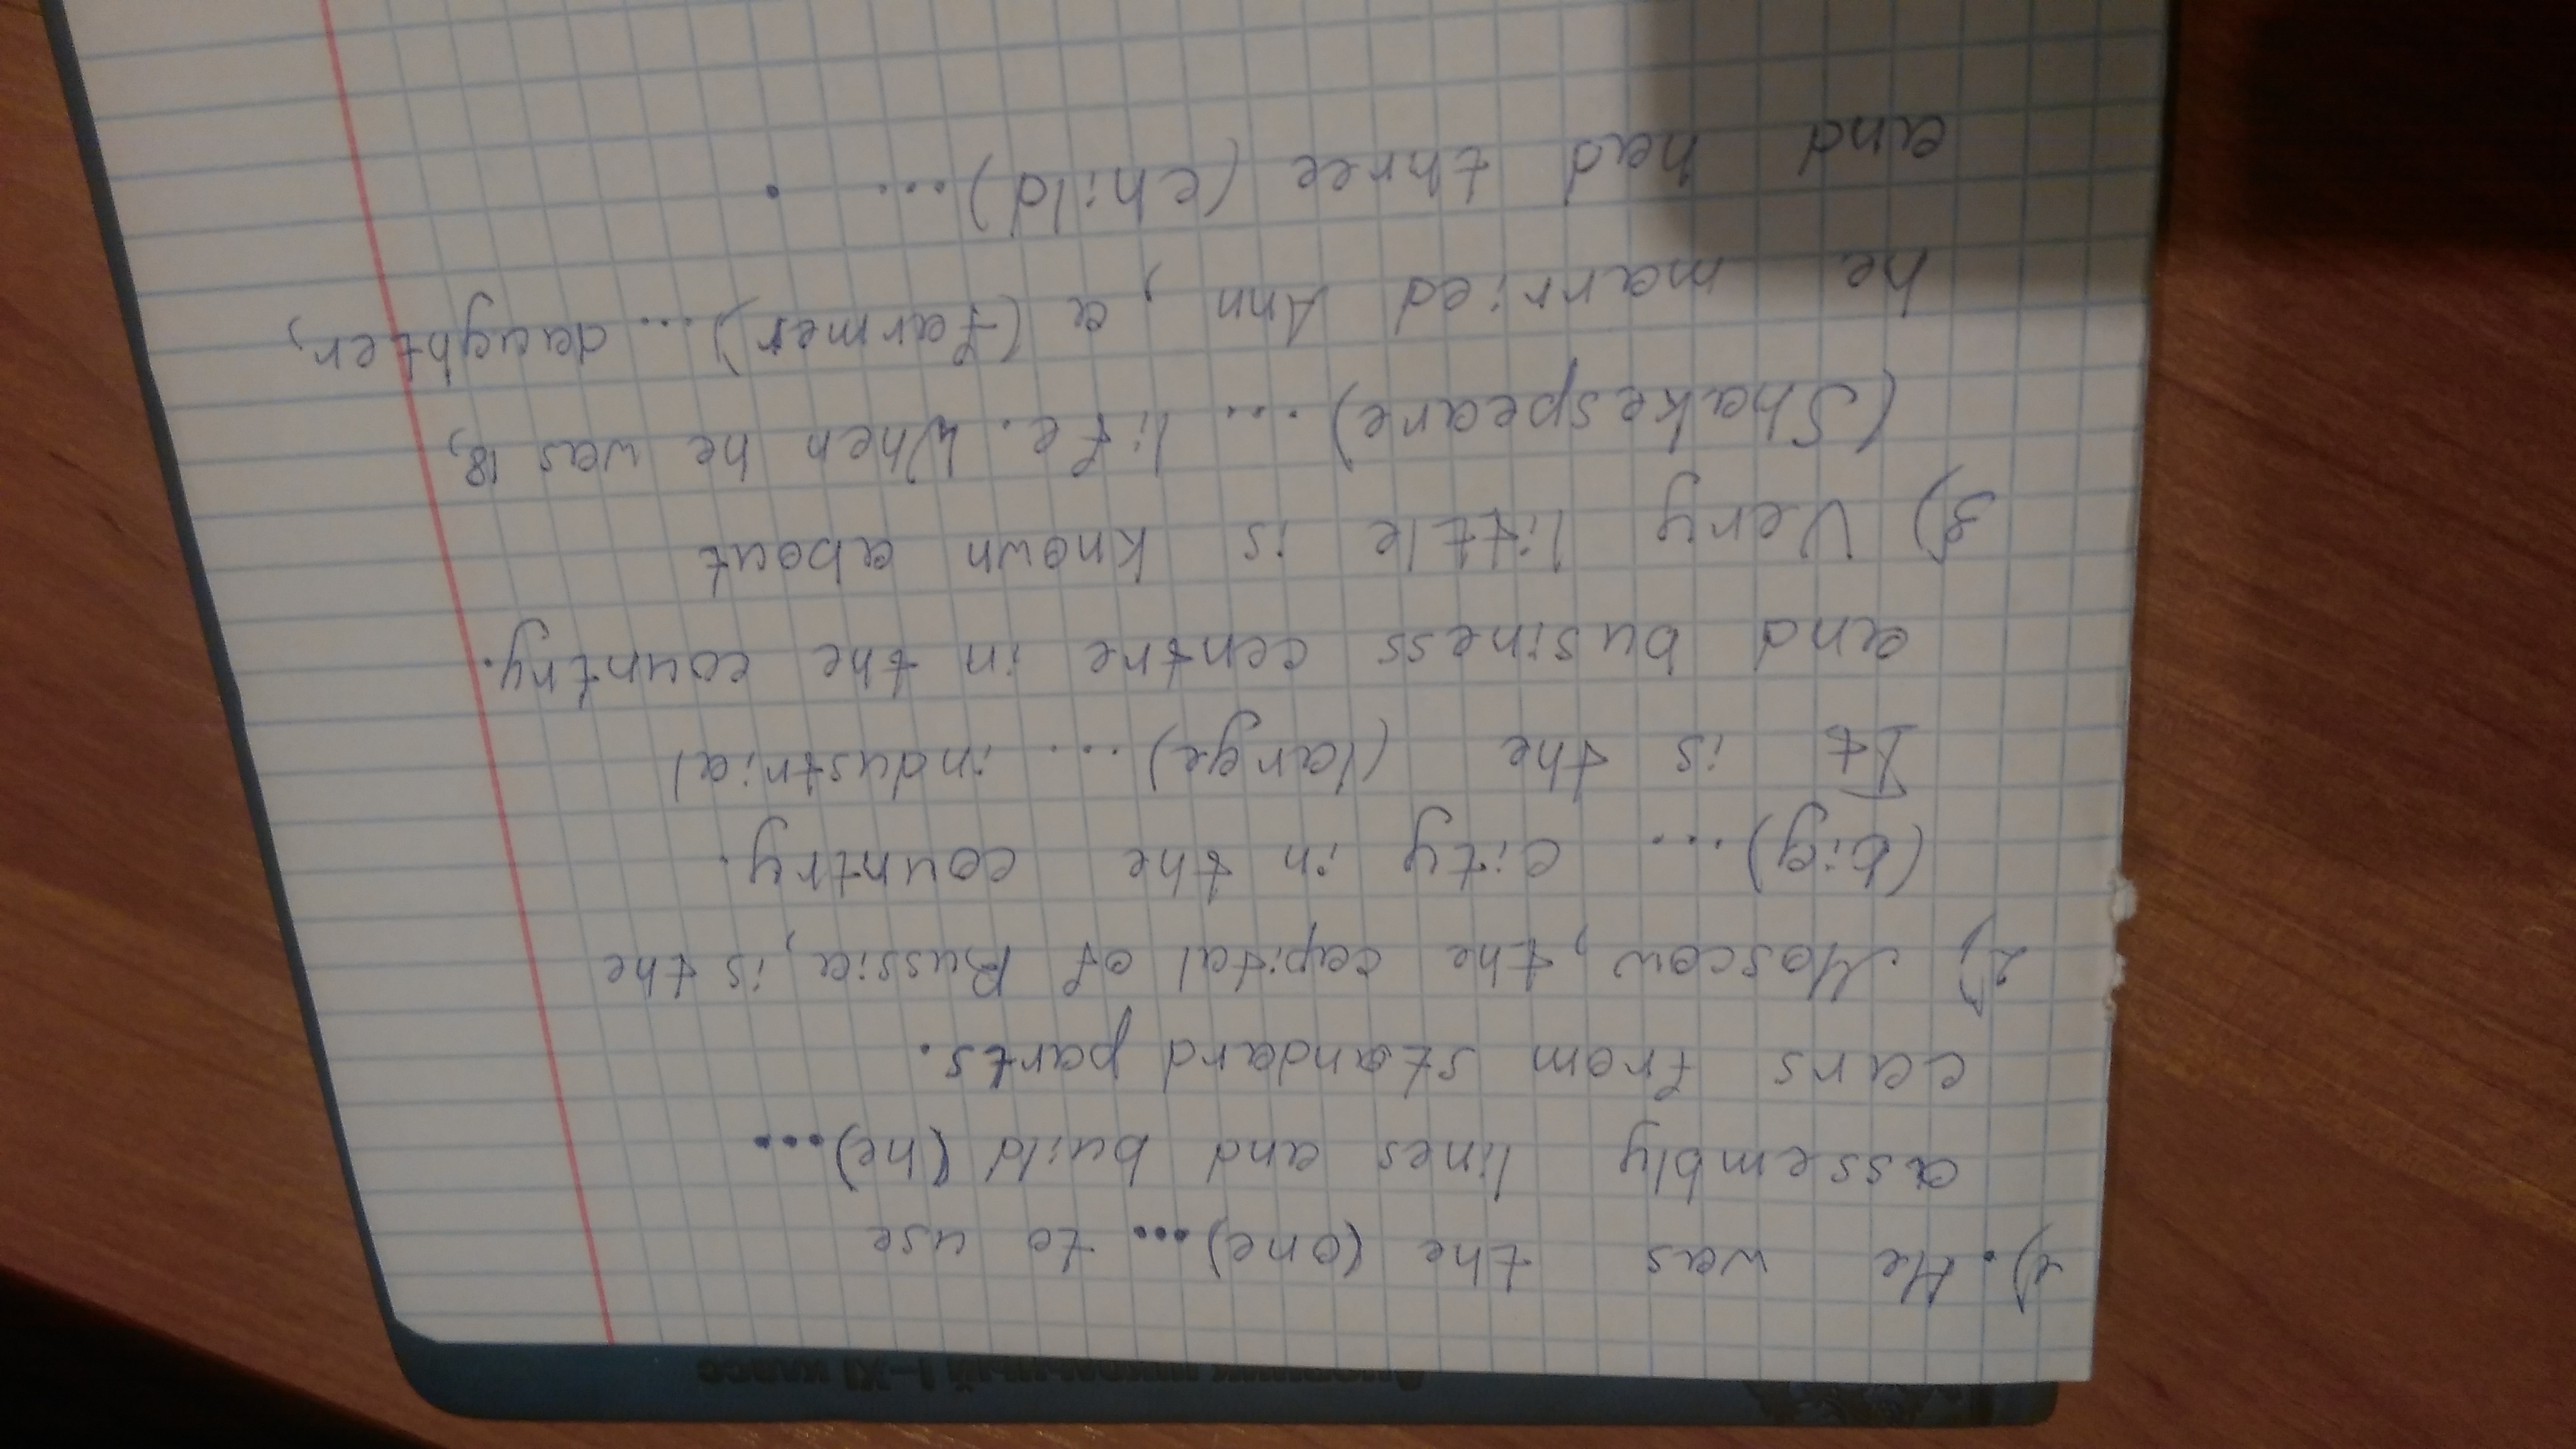 Дневник школьный I–XI класс
1). He was the (one)... to use
assembly lines and build (he)...
cars from standard parts.
2) Moscow, the capital of Russia, is the
(big)... city in the country.
It is the (large)... industrial
and business centre in the country.
3) Very little is known about
(Shakespeare)... life. When he was 18,
he married Ann, a (farmer)... daughter,
and had three (child)... .